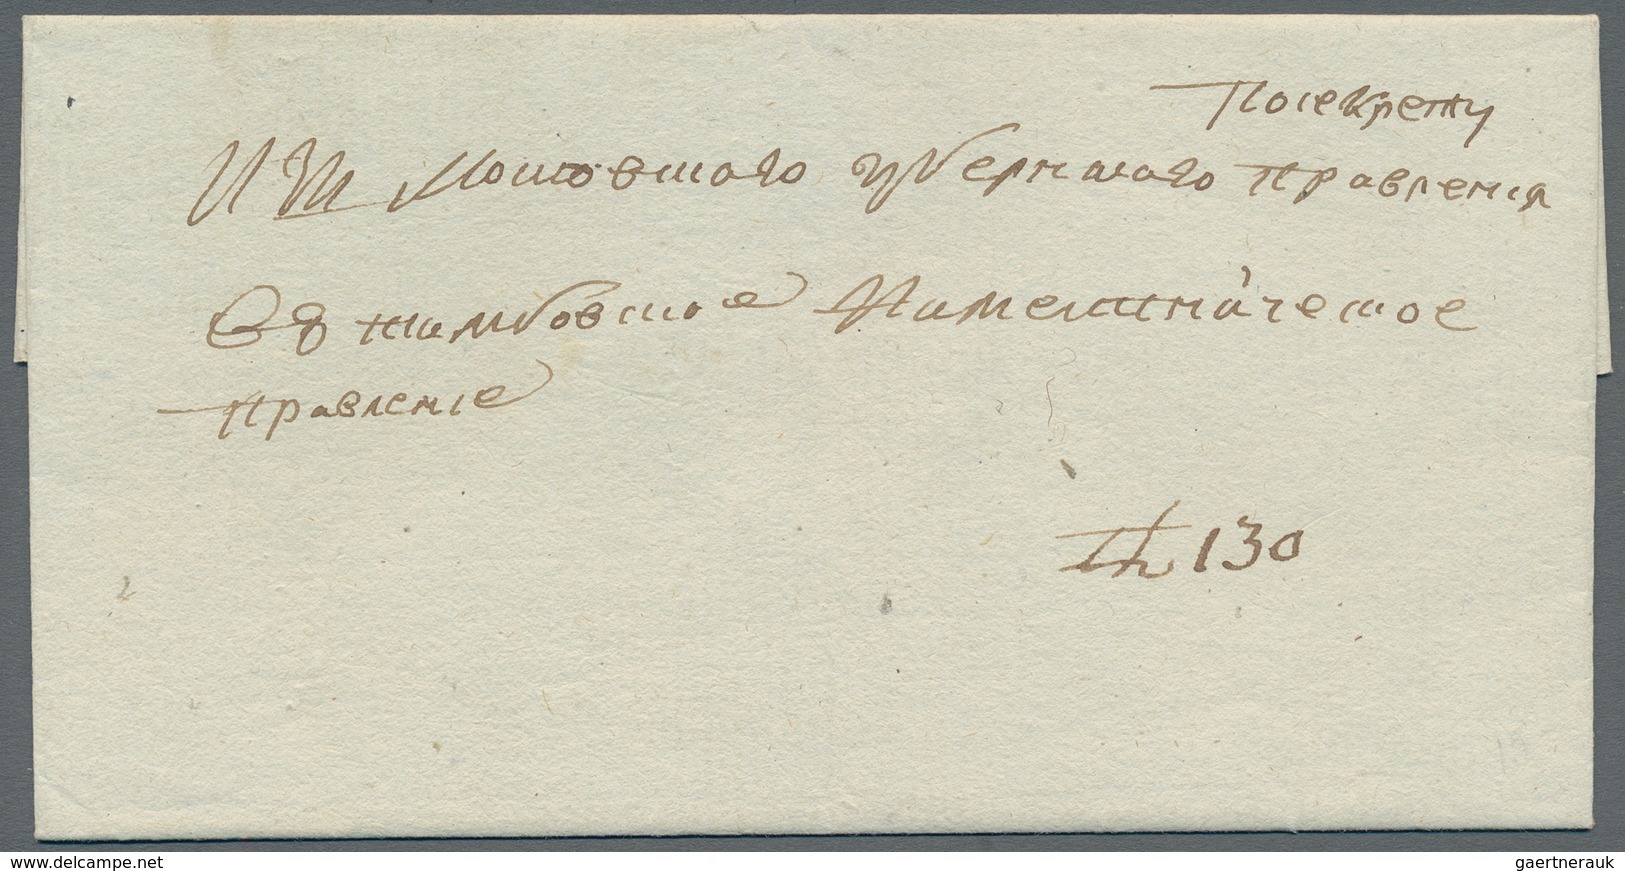 По секрету
Изъ Московскаго губернскаго правления
Въ тамбовское Наместническое
правление
№ 130
www.delcampe.net
gaertnerauk